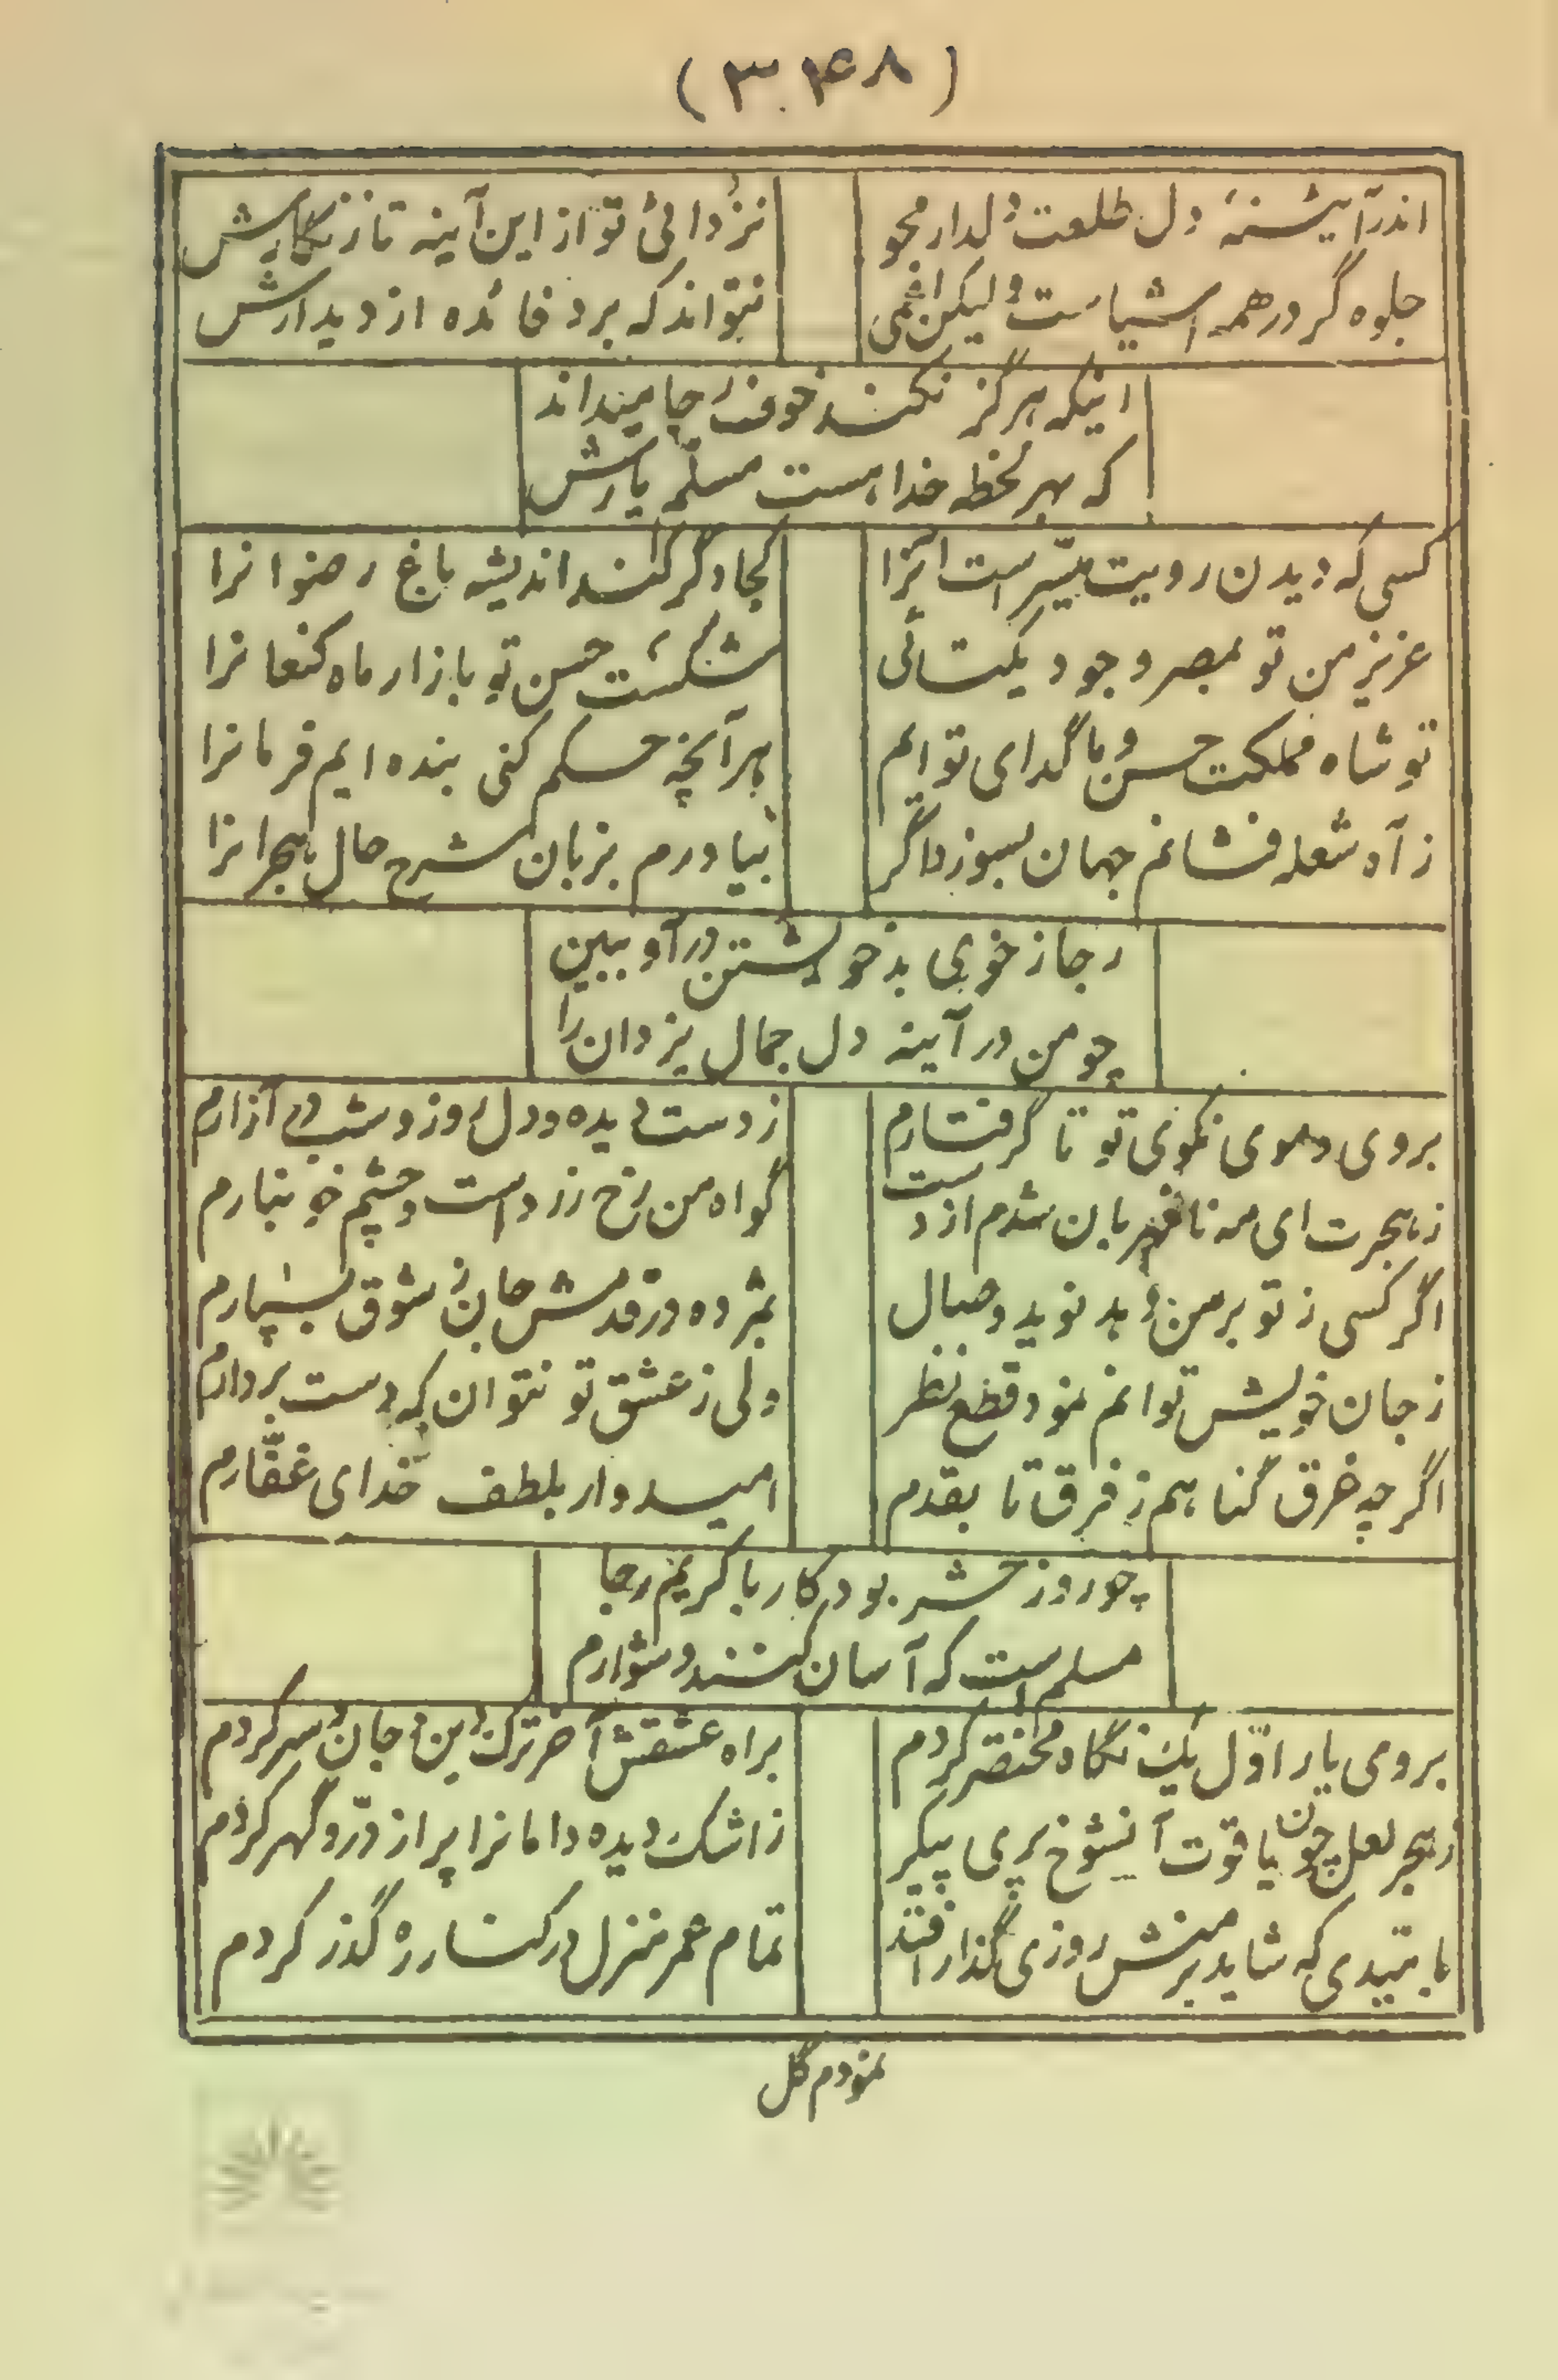 (۳۴۸)
اندر آیینهٔ دل طلعت دلدار مجو
نزدائی تو از این آینه تا زنگارش
جلوه گر در همه اشیاست ولیکن اعمی
نتواند که برد فائده از دیدارش
اینکه هرگز نکند خوف رجا میداند
که بهر لحظه خدا هست مسلّم یارش
کسی که دیدن رویت میسّر است آنرا
کجا دگر کند اندیشه باغ رضوانرا
عزیز من تو بمصر وجود یکتائی
شکست حسن تو بازار ماه کنعانرا
تو شاه مملکت حسن و ما گدای توایم
هر آنچه حکم کنی بنده ایم فرمانرا
ز آه شعله فشانم جهان بسوزد اگر
بیاورم بزبان شرح حال هجرانرا
رجا ز خوی بد خویشتن درآ و ببین
چو من در آینه دل جمال یزدان را
بروی و موی نکوی تو تا گرفتارم
ز دست دیده و دل روز و شب در آزارم
ز هجرت ای مه نامهربان شدم از دست
گواه من رخ زرد است و چشم خونبارم
اگر کسی ز تو بر من دهد نوید وصال
بمژده در قدمش جان ز شوق بسپارم
ز جان خویش توانم نمود قطع نظر
ولی ز عشق تو نتوان که دست بردارم
اگر چه غرق گناهم ز فرق تا بقدم
امیدوار بلطف خدای غفّارم
چو روز حشر بود کار با کریم رجا
مسلم است که آسان کنند دشوارم
بروی یار اوّل یک نگاه مختصر کردم
براه عشقش آخر ترک دین و جان و سر کردم
ز هجر لعل چون یاقوت آنشوخ پری پیکر
ز اشک دیده دامانرا پر از درّ و گهر کردم
بامیدی که شاید بر منش روزی گذار افتد
تمام عمر منزل در کنار ره گذر کردم
نمودم گل